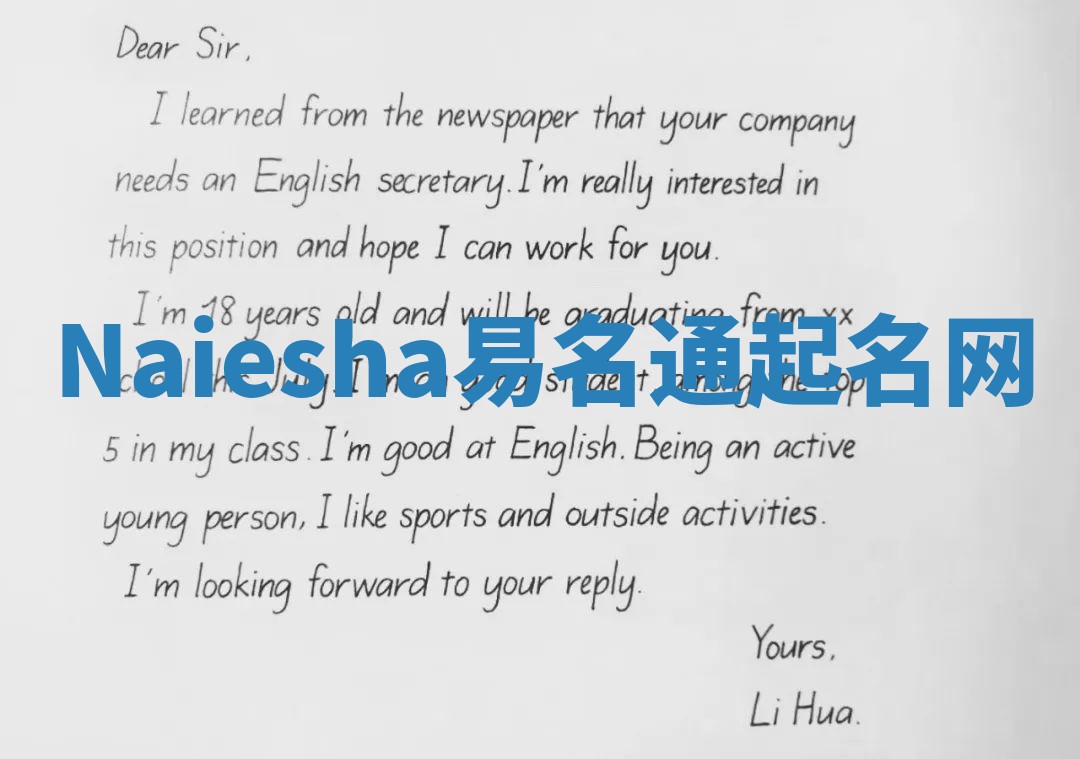 Dear Sir,
I learned from the newspaper that your company
needs an English secretary. I'm really interested in
this position and hope I can work for you.
I'm 18 years old and will be graduating from xx
Naiesha易名通起名网
July. I'm a good student, among the top
5 in my class. I'm good at English. Being an active
young person, I like sports and outside activities.
I'm looking forward to your reply.
Yours,
Li Hua.